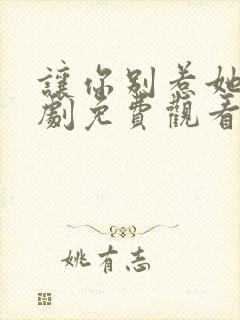 讓你別惹她
劇免費觀看
姚有志